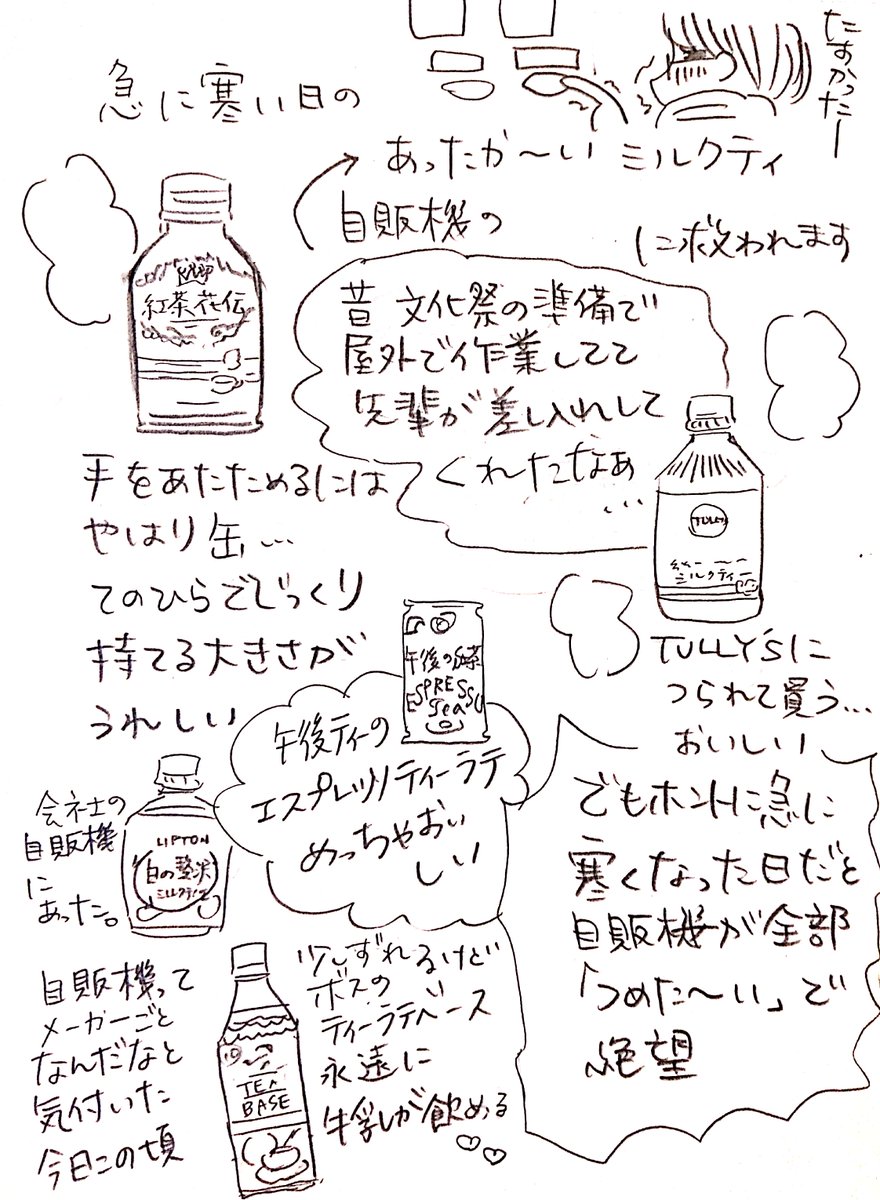 たすかったー
急に寒い日の
自販機の
あったか〜い ミルクティ
に救われます
紅茶花伝
昔 文化祭の準備で
屋外で作業してて
先輩が差し入れして
くれたなぁ
...
手をあたためるには
やはり缶...
てのひらでじっくり
持てる大きさが
うれしい
TULLY'S
ミルクティー
TULLY'Sに
つられて買う...
おいしい
午後の紅茶
ESPRESSO
Tea
午後ティーの
エスプレッソティーラテ
めっちゃおい
しい
でもホントに急に
寒くなった日だと
自販機が全部
「つめた〜い」で
絶望
会社の
自販機
に
あった。
LIPTON
白の贅沢
ミルクティー
自販機って
メーカーごと
なんだなと
気付いた
今日この頃
TEA
BASE
少しずれるけど
ボスの
ティーラテベース
永遠に
牛乳が飲める